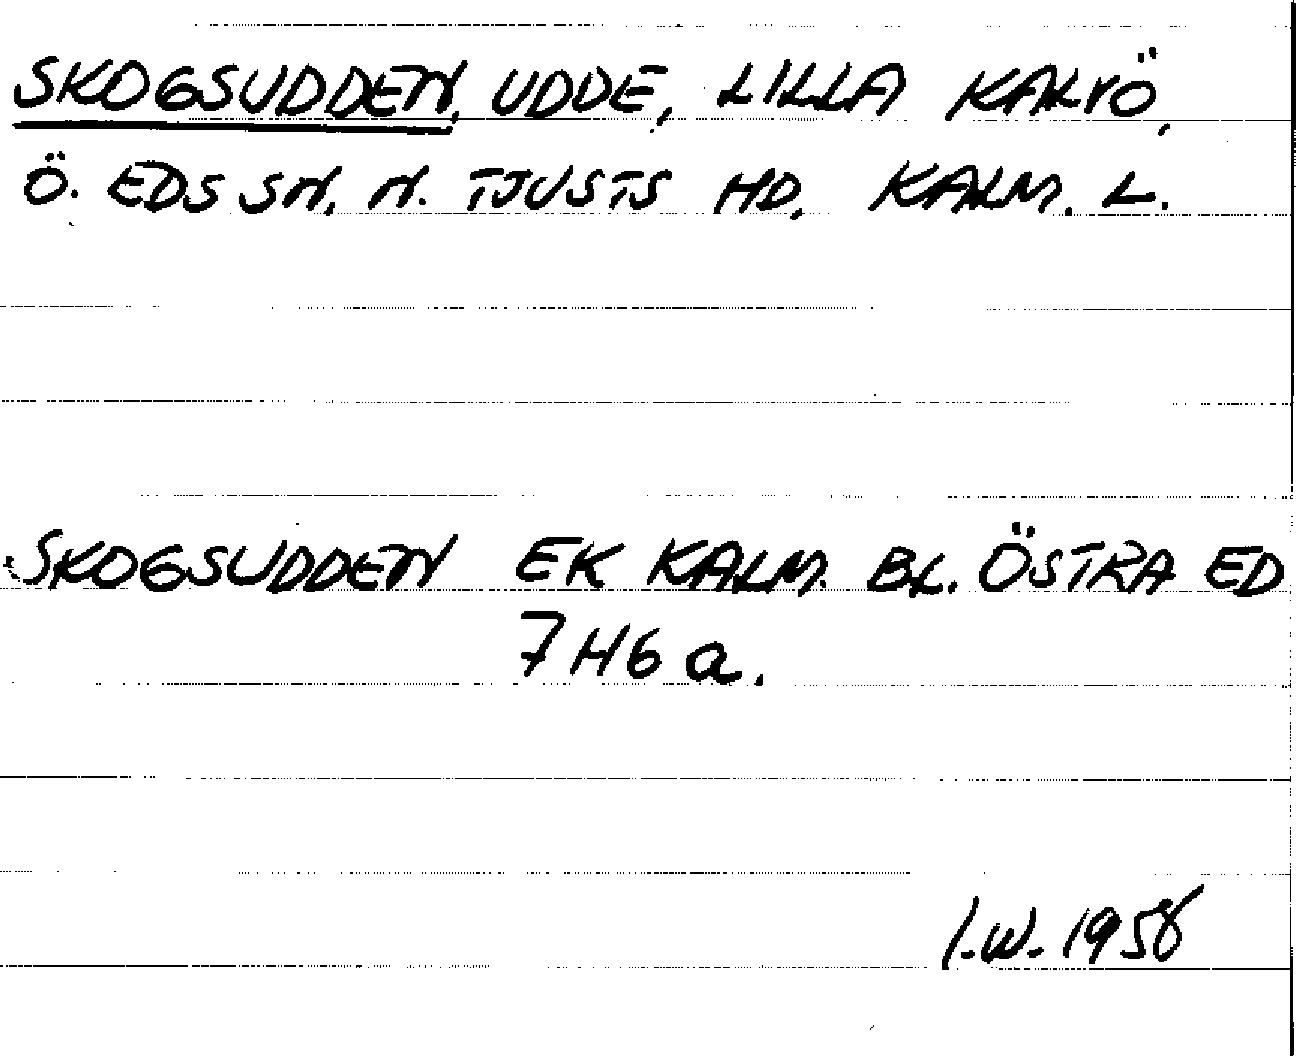 SKOGSUDDEN, UDDE, LILLA KALVÖ,
Ö. EDS SN, N. TJUSTS HD, KALM. L.
SKOGSUDDEN EK KALM. BL. ÖSTRA ED
7H6a.
I.W. 1958